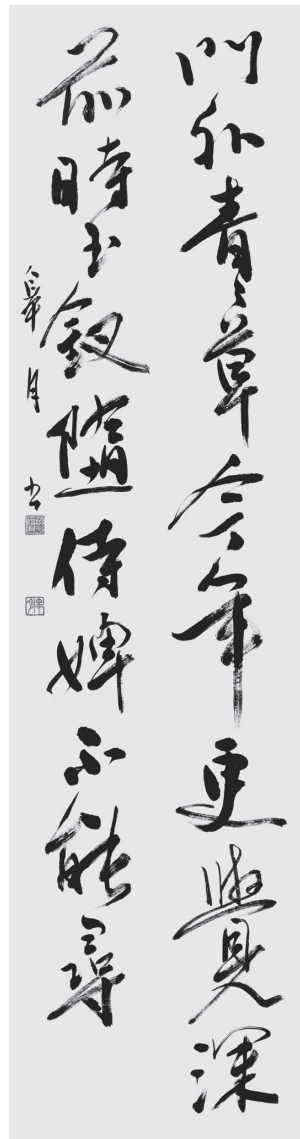 門外青々草今年更覺深
前時玉釵墮侍婢不能尋
月書